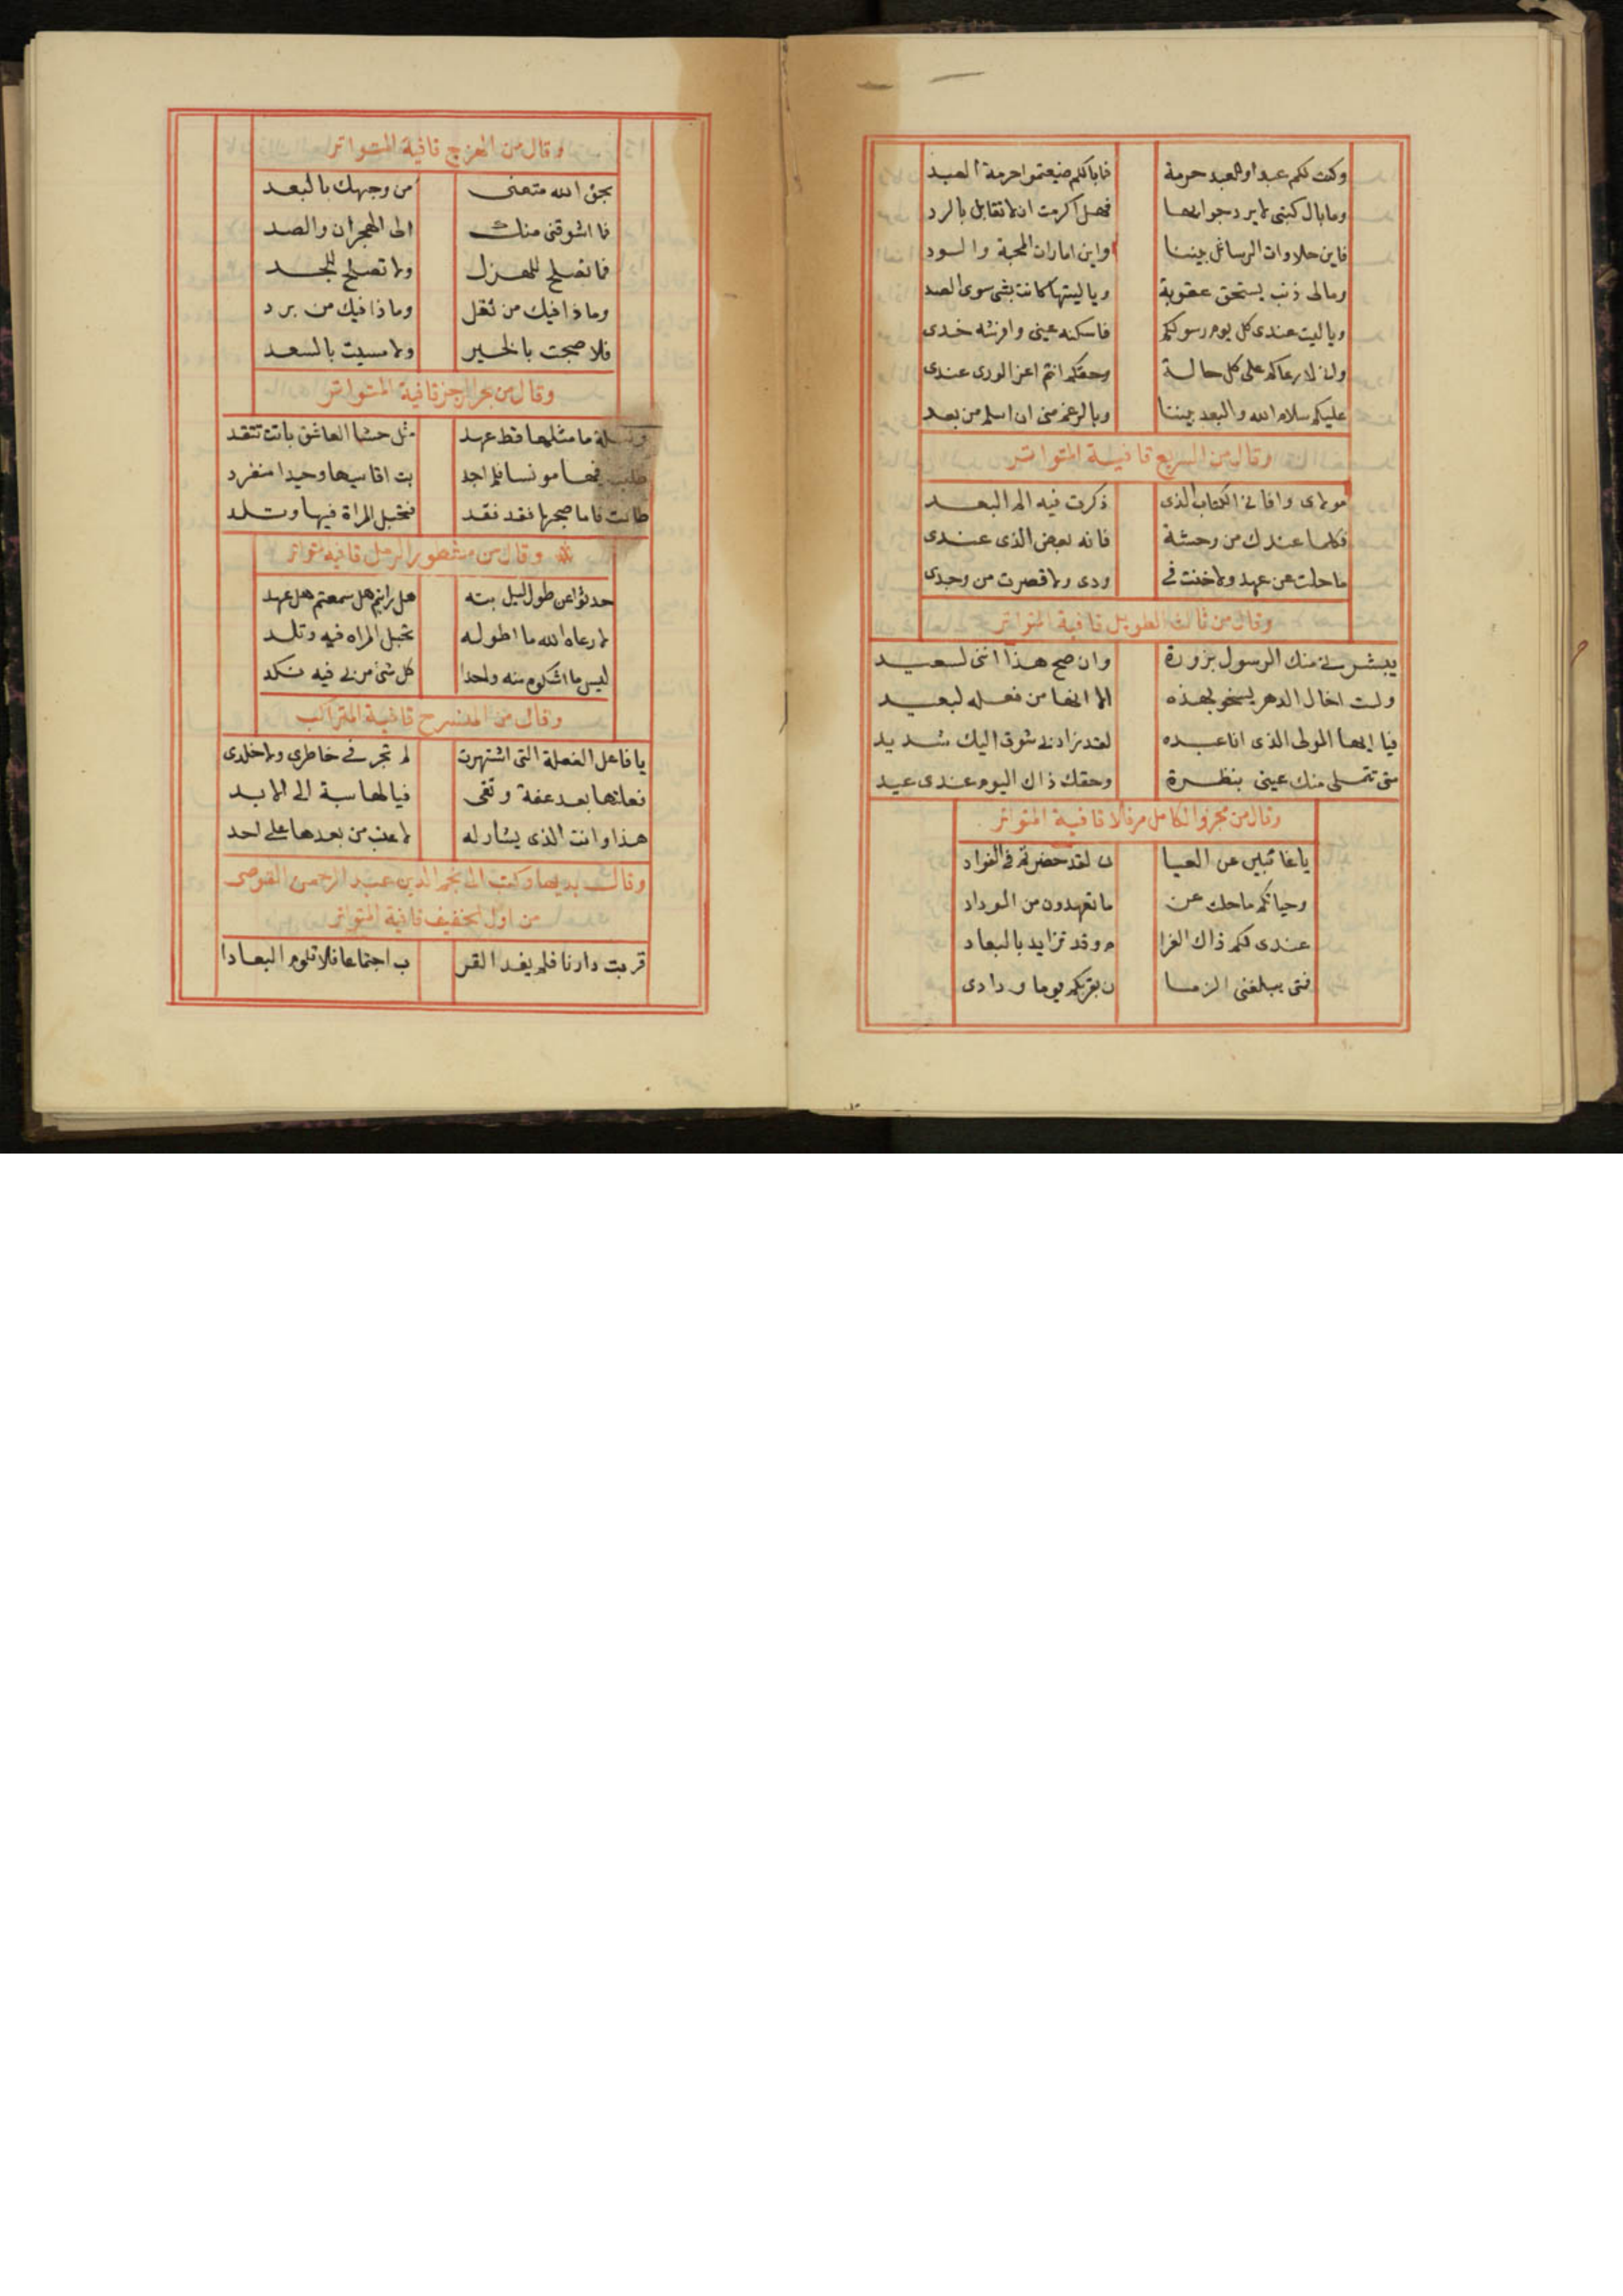 وكنت لكم عبدا وللعبد حرمة فما بالكم ضيعتموا حرمة العبد
وما بال كتبي لا يرد جوابها فهل اكرمت ان لا تقابل بالرد
فاين حلاوات الرسائل بيننا واين امارات المحبة والود
ومالى ذنب يستحق عقوبة ويا ليتها كانت بشى سوى الصد
ويا ليت عندى كل يوم رسولكم فاسكنه عينى وافرشه خدى
وانى لارعاكم على كل حالة وحقكم انتم اعز الورى عندى
عليكم سلام الله والبعد بيننا وبالرغم منى ان اسلم من بعد
وقال من السريع قافية المتواتر
مولاى وافانى الكتاب الذى ذكرت فيه الم البعد
فكلما عندك من وحشة فانه بعض الذى عندى
ما حلت عن عهد ولا خنت فى ودى ولا قصرت من وجدى
وقال من ثالث الطويل قافية المتواتر
يبشرنى منك الرسول بزورة وان صح هذا اننى لسعيد
ولست اخال الدهر يسخو بهذه الا انها من فعله لبعيد
فيا ايها المولى الذى انا عبده لقد زادنى شوق اليك شديد
متى تتملى منك عينى بنظرة وحقك ذاك اليوم عندى عيد
وقال من مجزوالكامل مرفلا قافية المتواتر
يا غائبين عن العيا ن لقد حضرتم فى الفواد
وحياتكم ما حلت عن ما تعهدون من الوداد
عندى لكم ذاك الغرا م وقد تزايد بالبعاد
فمتى يبلغنى الزما ن بقربكم يوما ودادى
وقال من الهزج قافية المتواتر
بحق الله متعنى من وجهك بالبعد
فما اشوقنى منك الى الهجران والصد
فما تصلح للهزل ولا تصلح للجد
وماذا فيك من ثقل وماذا فيك من برد
فلا صبحت بالخير ولا مسيت بالسعد
وقال من بحر الرجز قافية المتواتر
وليلة ما مثلها قط عهد مثل حشا العاشق باتت تتقد
طلبت فيها مونسا فلم اجد بت اقاسيها وحيدا منفرد
طالت فاما صبحها فقد فقد فتحبل المراة فيها وتلد
وقال من مشطور الرمل قافيه متواتر
حدثوا عن طول ليل بته هل رايتم هل سمعتم هل عهد
لا رعاه الله ما اطوله تحبل المراه فيه وتلد
ليس ما اشكوه منه واحدا كل شئ مر بى فيه نكد
وقال من المنسرح قافية المتراكب
يا فاعل الفعلة التى اشتهرت لم تجر فى خاطرى ولا خلدى
فعلتها بعد عفة وتقى فيا لها سبة الى الابد
هذا وانت الذى يشار له لا عتب من بعدها على احد
وقال بديها وكتب الى نجم الدين عبد الرحمن القوصى
من اول الخفيف قافية المتواتر
قربت دارنا فلم يفد القر ب اجتماعا فلا تلوم البعادا